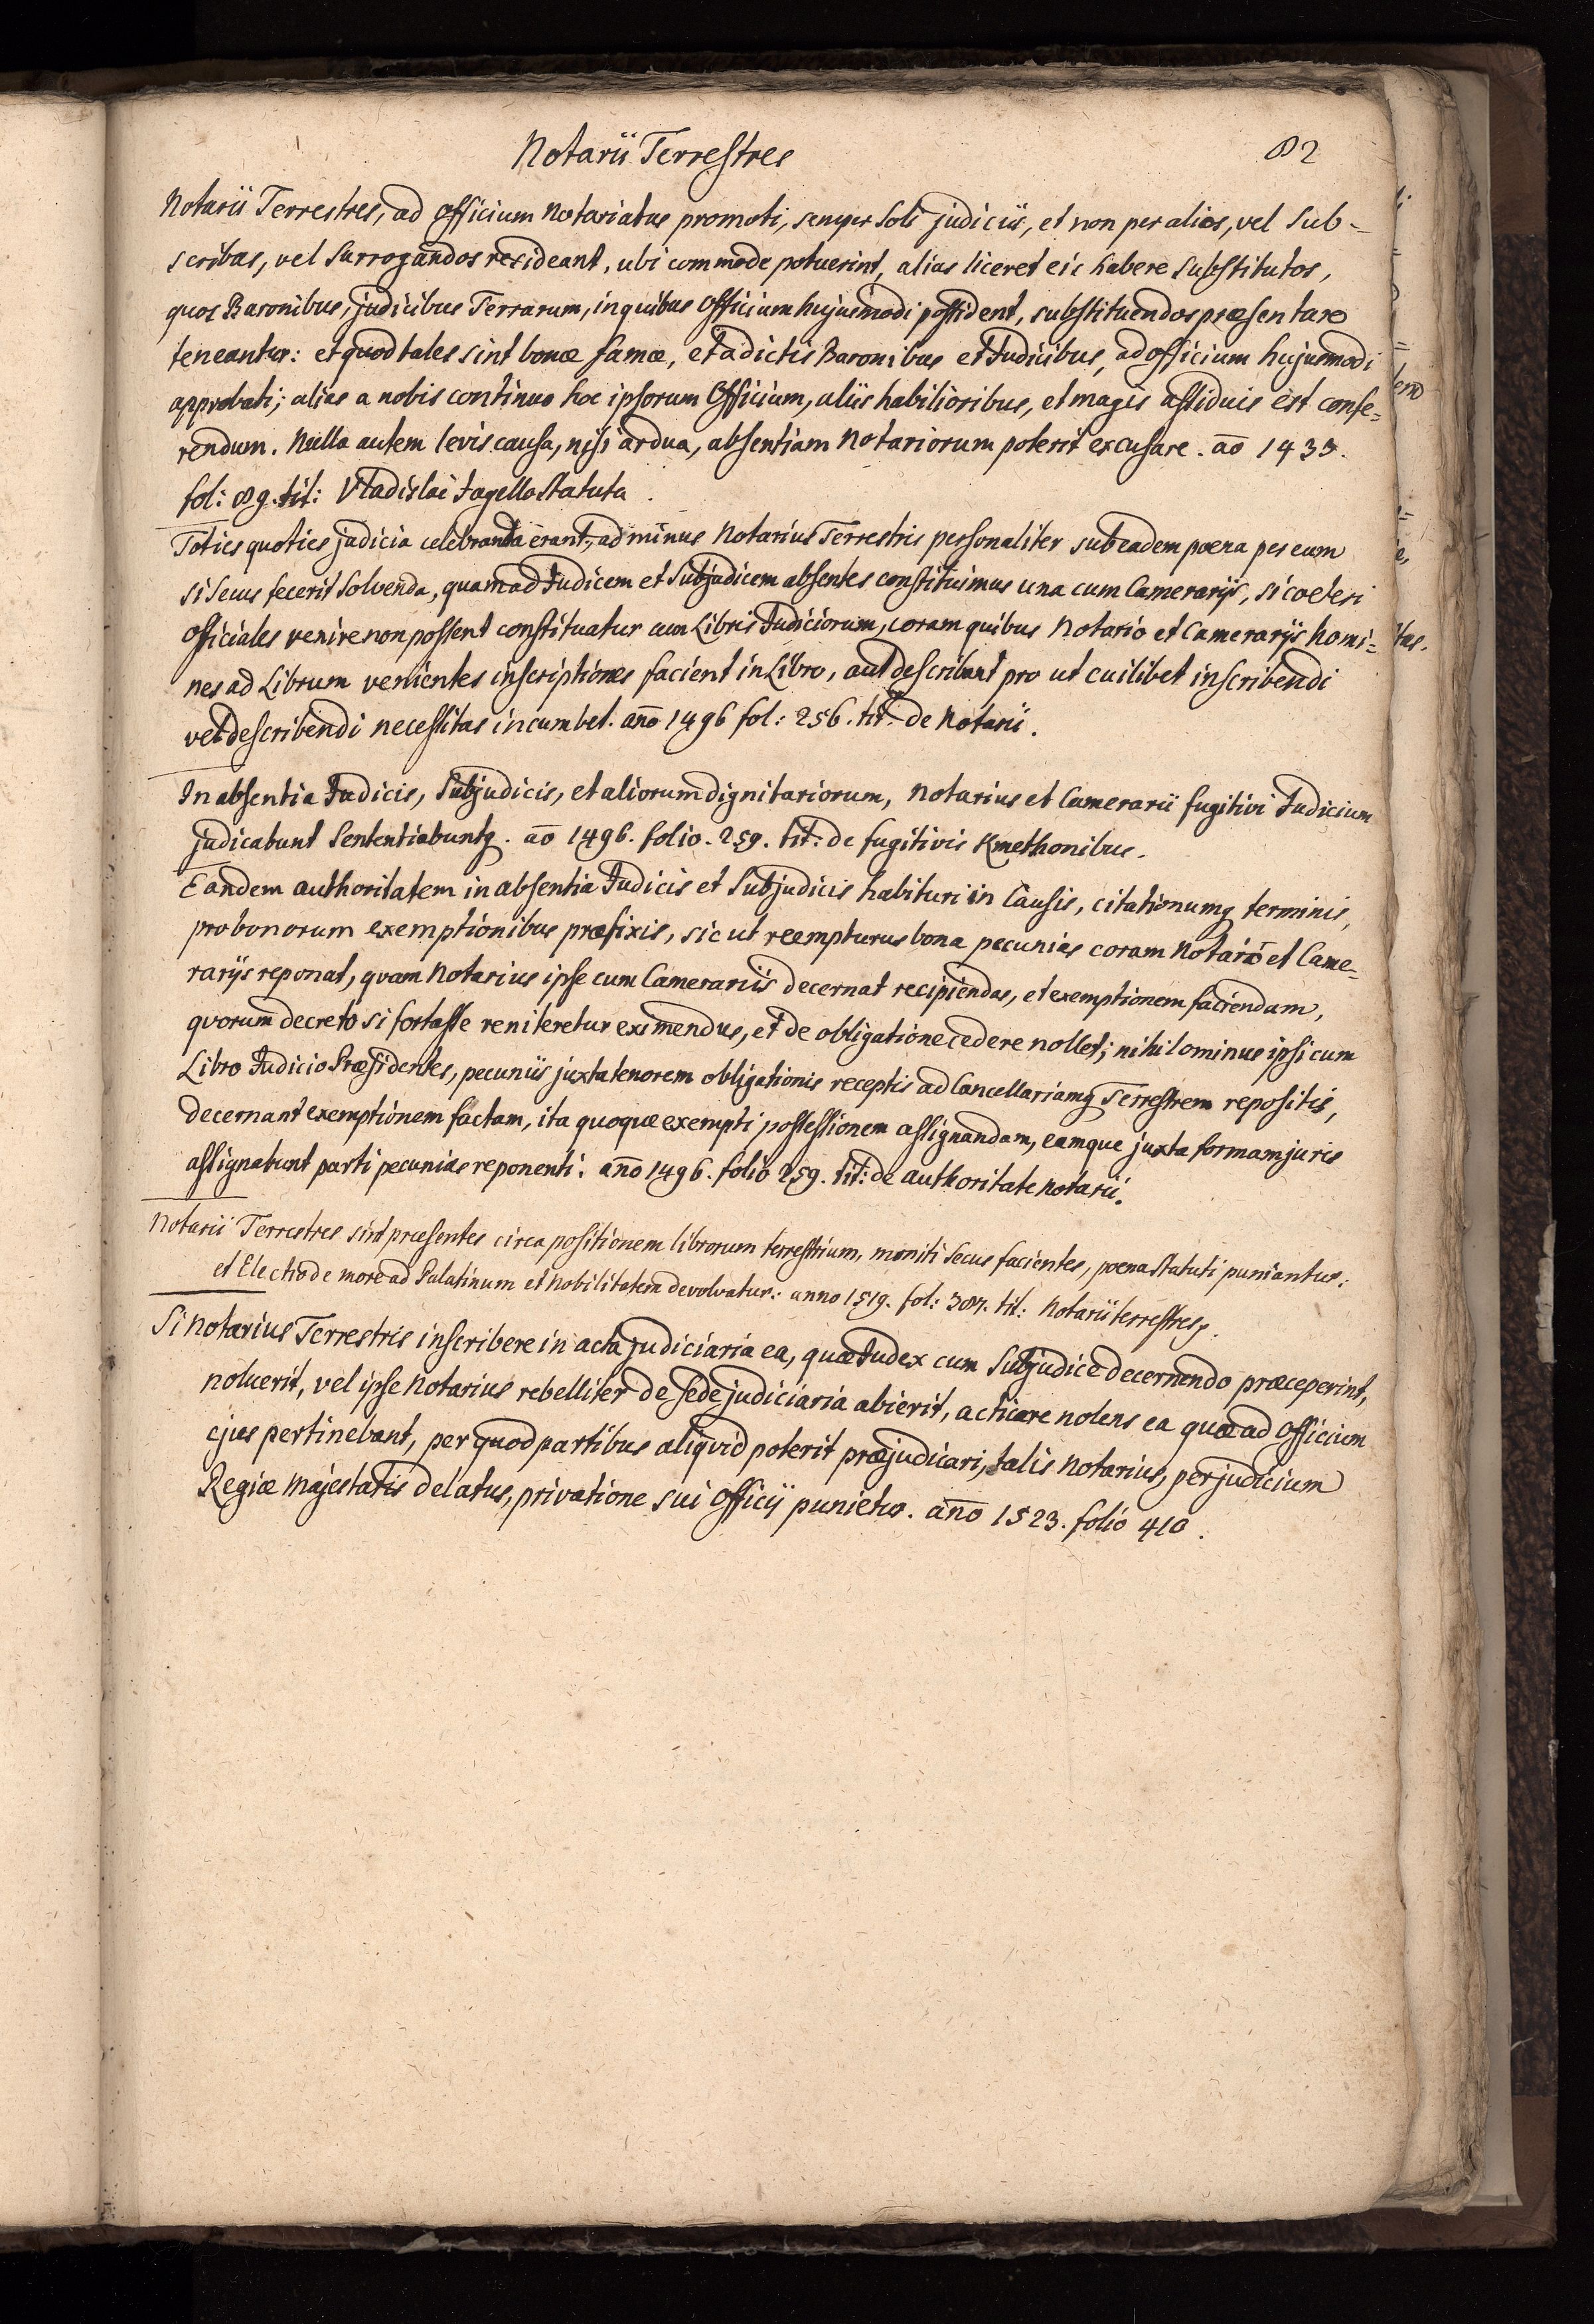 Notarii Terrestres
82
Notarii Terrestres, ad officium Notariatus promoti, semper soli judiciis, et non per alios, vel Sub-
scribas, vel Surrogandos resideant, ubi commode potuerint, alias liceret eis habere Substitutos,
quos Baronibus, judicibus Terrarum, in quibus Officium hujusmodi possident, substituendos præsentare
teneantur: et quod tales sint bonæ famæ, et a dictis Baronibus et Judicibus, ad officium hujusmodi
approbati; alias a nobis continuo hoc ipsorum Officium, aliis habilioribus, et magis assiduis est confe=
rendum. Nulla autem levis causa, nisi ardua, absentiam Notariorum poterit excusare. aō 1433.
fol: 89. tit: Vladislai Jagello Statuta.
Toties quoties judicia celebranda erant, ad minus Notarius Terrestris personaliter sub eadem poena per eum
si secus fecerit solvenda, quam ad Judicem et Subjudicem absentes constituimus una cum Camerarijs, si coeteri
officiales venire non possent constituatur cum Libris Judiciorum, coram quibus Notario et Camerarijs homi=
nes ad Librum venientes inscriptiones facient in Libro, aut describant pro ut cuilibet inscribendi
vel describendi necessitas incumbet. año 1496 fol: 256. tit: de Notarii.
In absentia Judicis, Subjudicis, et aliorum dignitariorum, Notarius et Camerarii fugitivi Judicium
judicabunt Sententiabuntq. aō 1496. folio. 259. tit: de fugitivis Kmethonibus.
Eandem authoritatem in absentia Judicis et Subjudicis habituri in Causis, citationumq terminis,
pro bonorum exemptionibus præfixis, sic ut reempturus bona pecunias coram Notario et Came=
rarijs reponat, quam Notarius ipse cum Camerariis decernat recipiendas, et exemptionem faciendam,
quorum decreto si fortasse reniteretur eximendus, et de obligatione cedere nollet; nihilominus ipsi cum
Libro Judicio Præsidentes, pecuniis juxta tenorem obligationis receptis ad Cancellariamq Terrestrem repositis,
decernant exemptionem factam, ita quoque exempti possessionem assignandam, eamque juxta formam juris
assignabunt parti pecunias reponenti. año 1496. folio 259. tit: de authoritate Notarii.
Notarii Terrestres sint præsentes circa positionem librorum terrestrium, moniti secus facientes, poena statuti puniantur:
et Electio de more ad Palatinum et Nobilitatem devolvatur: anno 1519. fol: 387. tit: Notarii terrestres.
Si Notarius Terrestris inscribere in acta judiciaria ea, quæ Judex cum Subjudice decernendo præceperint,
noluerit, vel ipse Notarius rebelliter de sede judiciaria abierit, acticare nolens ea quæ ad Officium
ejus pertinebant, per quod partibus aliqvid poterit præjudicari, talis Notarius, per judicium
Regiæ Majestatis delatus, privatione sui Officij punietur. año 1523. folio 410.